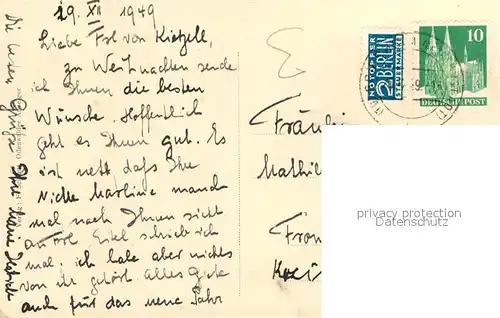 29. XII 1949
Liebe Frl von Kietzell,
zu Weihnachten sende
ich Ihnen die besten
Wünsche. Hoffentlich
geht es Ihnen gut. Es
ist nett daſs Ihre
Nichte Marlinie manch
mal nach Ihnen sieht
an Frl. Eitel schrieb ich
mal, ich habe aber nichts
von ihr gehört. Alles Gute
auch für das neue Jahr
Die besten Grüße Ihre Marie
NOTOPFER
2 BERLIN
STEUERMARKE
10
DEUTSCHE POST
Fräulei
Mathil
Fron
Krei
privacy protection
VERO-Images